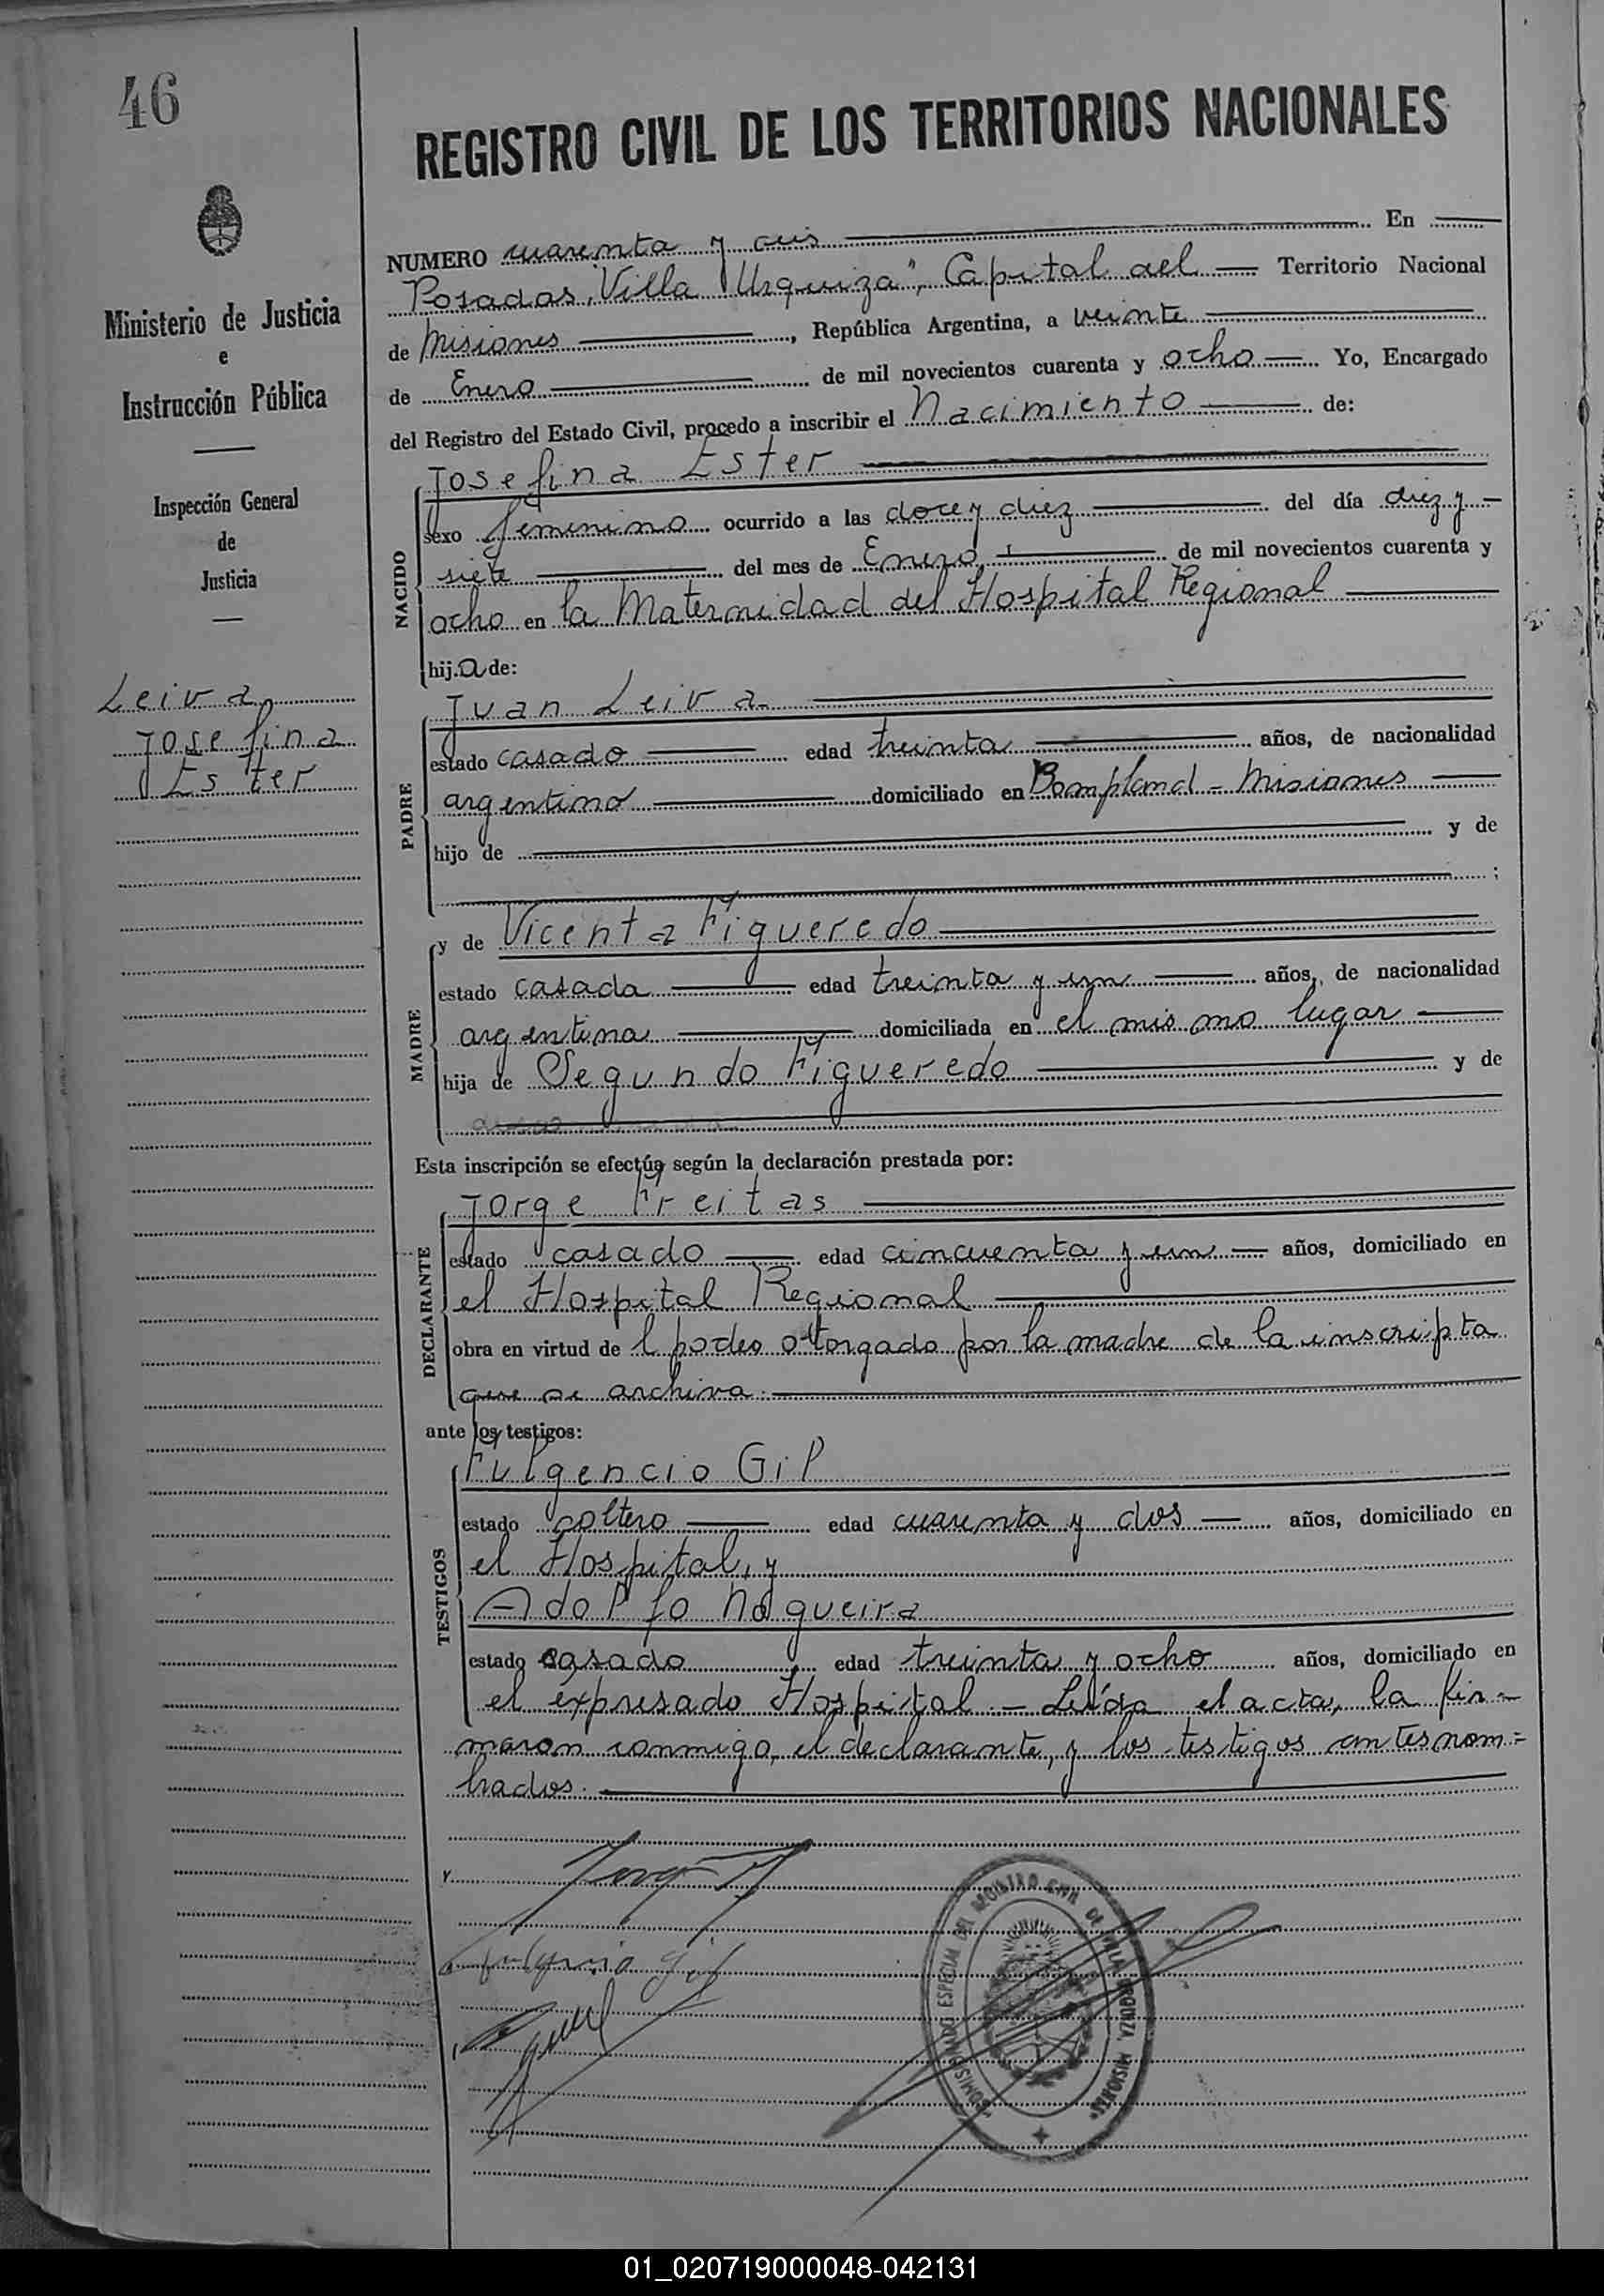 46
REGISTRO CIVIL DE LOS TERRITORIOS NACIONALES
Ministerio de Justicia
e
Instrucción Pública
Inspección General
de
Justicia
Leiva
Josefina
Ester
NUMERO cuarenta y seis En
Posadas, "Villa Urquiza", Capital del Territorio Nacional
de Misiones, República Argentina, a veinte
de Enero de mil novecientos cuarenta y ocho Yo, Encargado
del Registro del Estado Civil, procedo a inscribir el Nacimiento de:
NACIDO
Josefina Ester
sexo femenino ocurrido a las doce y diez del día diez y
siete del mes de Enero, de mil novecientos cuarenta y
ocho en la Maternidad del Hospital Regional
hija de:
PADRE
Juan Leiva
estado casado edad treinta años, de nacionalidad
argentino domiciliado en Bompland - Misiones
hijo de y de
;
MADRE
y de Vicenta Figueredo
estado casada edad treinta y un años, de nacionalidad
argentina domiciliada en el mismo lugar
hija de Segundo Figueredo y de
Esta inscripción se efectúa según la declaración prestada por:
DECLARANTE
Jorge Freitas
estado casado edad cincuenta y un años, domiciliado en
el Hospital Regional
obra en virtud del poder otorgado por la madre de la inscripta
que se archiva.
ante los testigos:
TESTIGOS
Fulgencio Gil
estado soltero edad cuarenta y dos años, domiciliado en
el Hospital, y
Adolfo Nogueira
estado casado edad treinta y ocho años, domiciliado en
el expresado Hospital - Leída el acta, la fir-
maron conmigo, el declarante, y los testigos antes nom=
brados.
Fulgencio Gil
COMISIONADO ESPECIAL DEL REGISTRO CIVIL DE VILLA URQUIZA, MISIONES
01_020719000048-042131